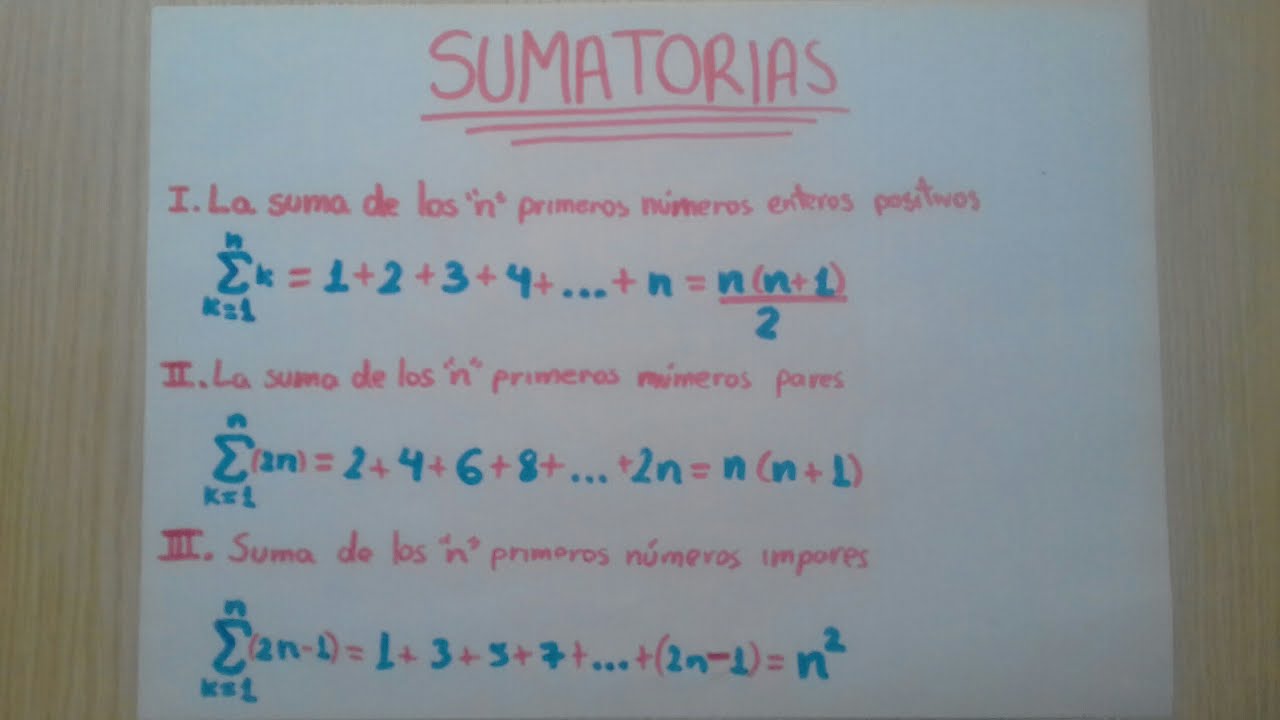 SUMATORIAS
I. La suma de los "n" primeros números enteros positivos
n
∑ k = 1+2+3+4+...+n = n(n+1)
k=1 2
II. La suma de los "n" primeros números pares
n
∑ (2n) = 2+4+6+8+...+2n = n(n+1)
k=1
III. Suma de los "n" primeros números impares
n
∑ (2n-1) = 1+3+5+7+...+(2n-1) = n²
k=1